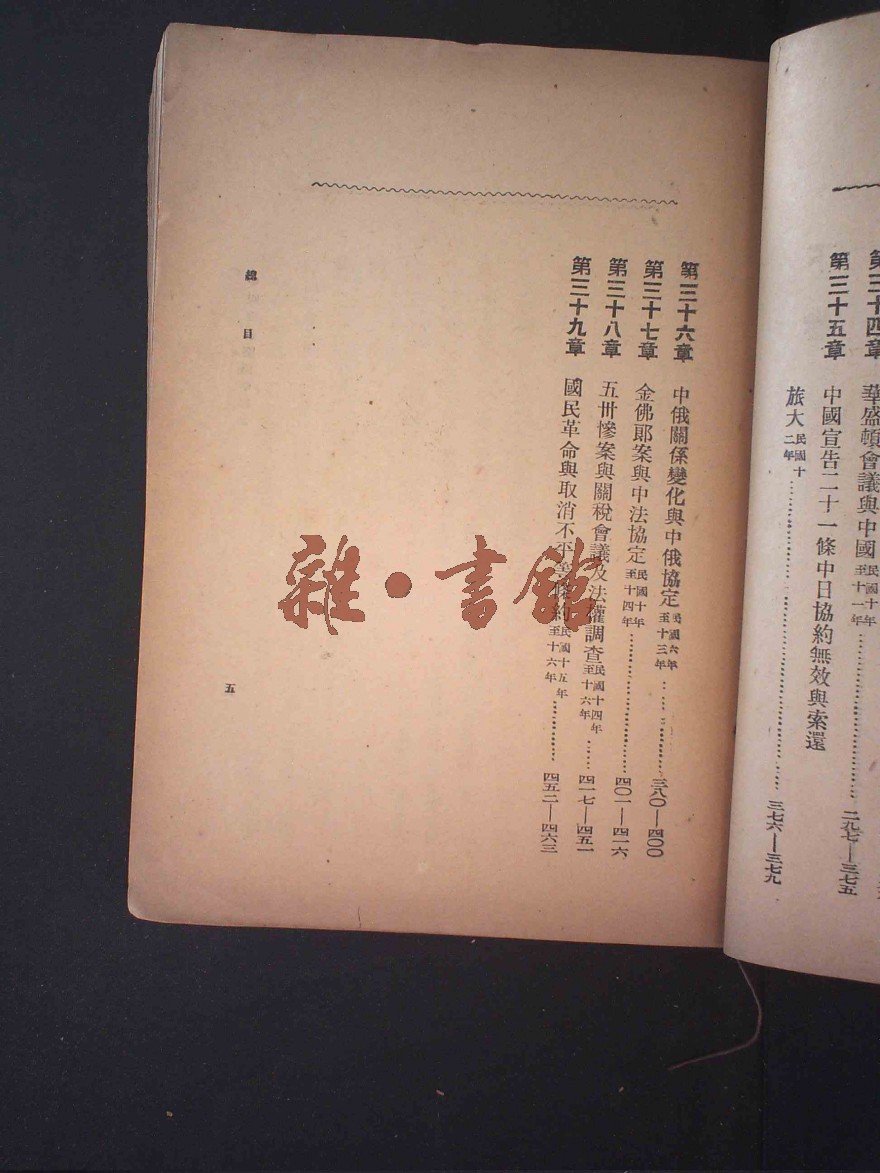 第三十四章　華盛頓會議與中國民國十年至十一年……二九七—三七五
第三十五章　中國宣告二十一條中日協約無效與索還
旅大民國十二年……三七六—三七九
第三十六章　中俄關係變化與中俄協定民國六年至十三年……三八〇—四〇〇
第三十七章　金佛郎案與中法協定民國十年至十四年……四〇一—四一六
第三十八章　五卅慘案與關稅會議及法權調查民國十四年至十六年……四一七—四五一
第三十九章　國民革命與取消不平等條約民國十五年至十六年……四五二—四六三
總目
五
雜·書館